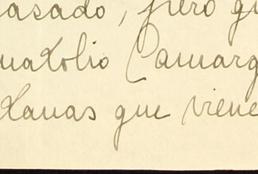 asado, pero qu
natolio Camarg
danas que viene